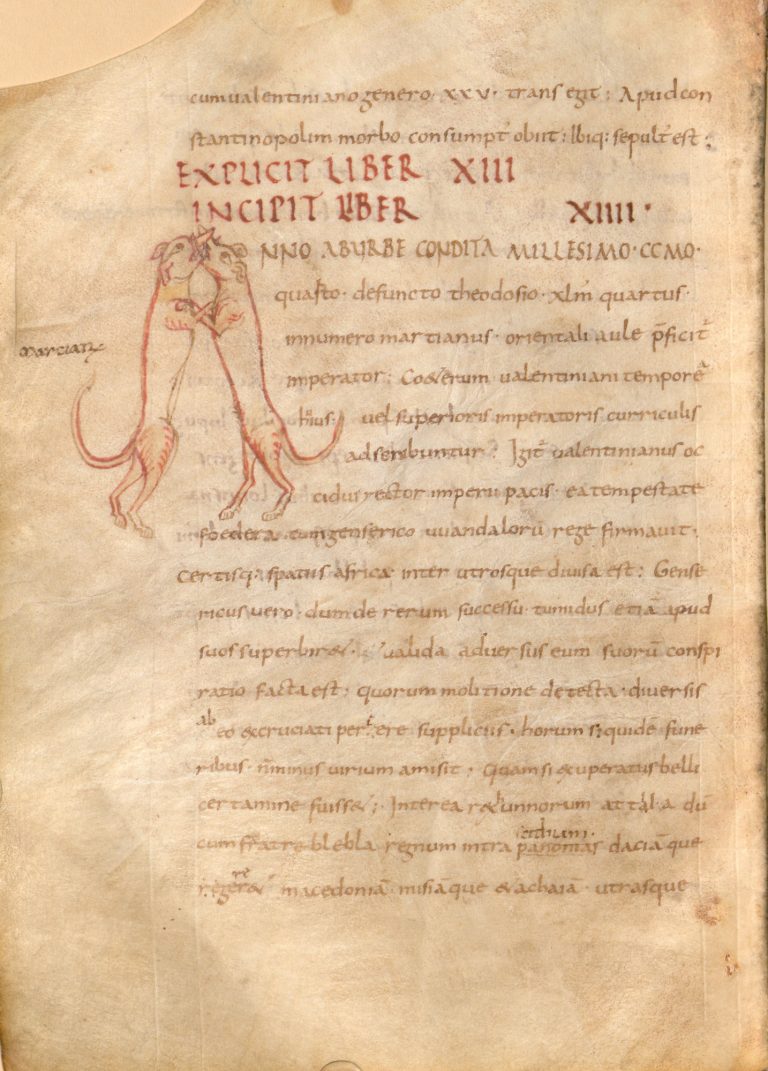 cumualentinianogenero · xxv · trans egit ; Apudcon
stantinopolim morbo consumpt᷒ obiit ; Ibiq: sepult᷒ est ;
EXPLICIT LIBER XIII
INCIPIT LIBER XIIII ·
NNO ABURBE CONDITA MILLESIMO · CCMO ·
quarto · defuncto theodosio · xlm̄ quartus ·
innumero martianus · orientali aule p̄ficit᷒
imperator ; ualentiniani tempore
uel superioris imperatoris curriculis
adscribuntur ; Igit᷒ ualentinianus oc
cidus rector imperii pacis · ea tempestate
foedera · cum genserico uuandalorū rege firmauit ·
certisq; spatiis africa inter utrosque diuisa est ; Gense
ricus uero · dum de rerum successu · tumidus etiā apud
suos superbir& · ualida aduersus eum suorū conspi
ratio facta est ; quorum molitione detecta · diuersis
ab
eo &cruciati periere suppliciis · horum siquidē fune
ribus · n̄ minus uirium amisit ; Quam si &uperatus belli
certamine fuiss& ; Interea r&hunnorum attila dū
cum fratre blebla regnum intra panonias daciāque
reger& macedoniā · misiāque &achaiā · utrasque